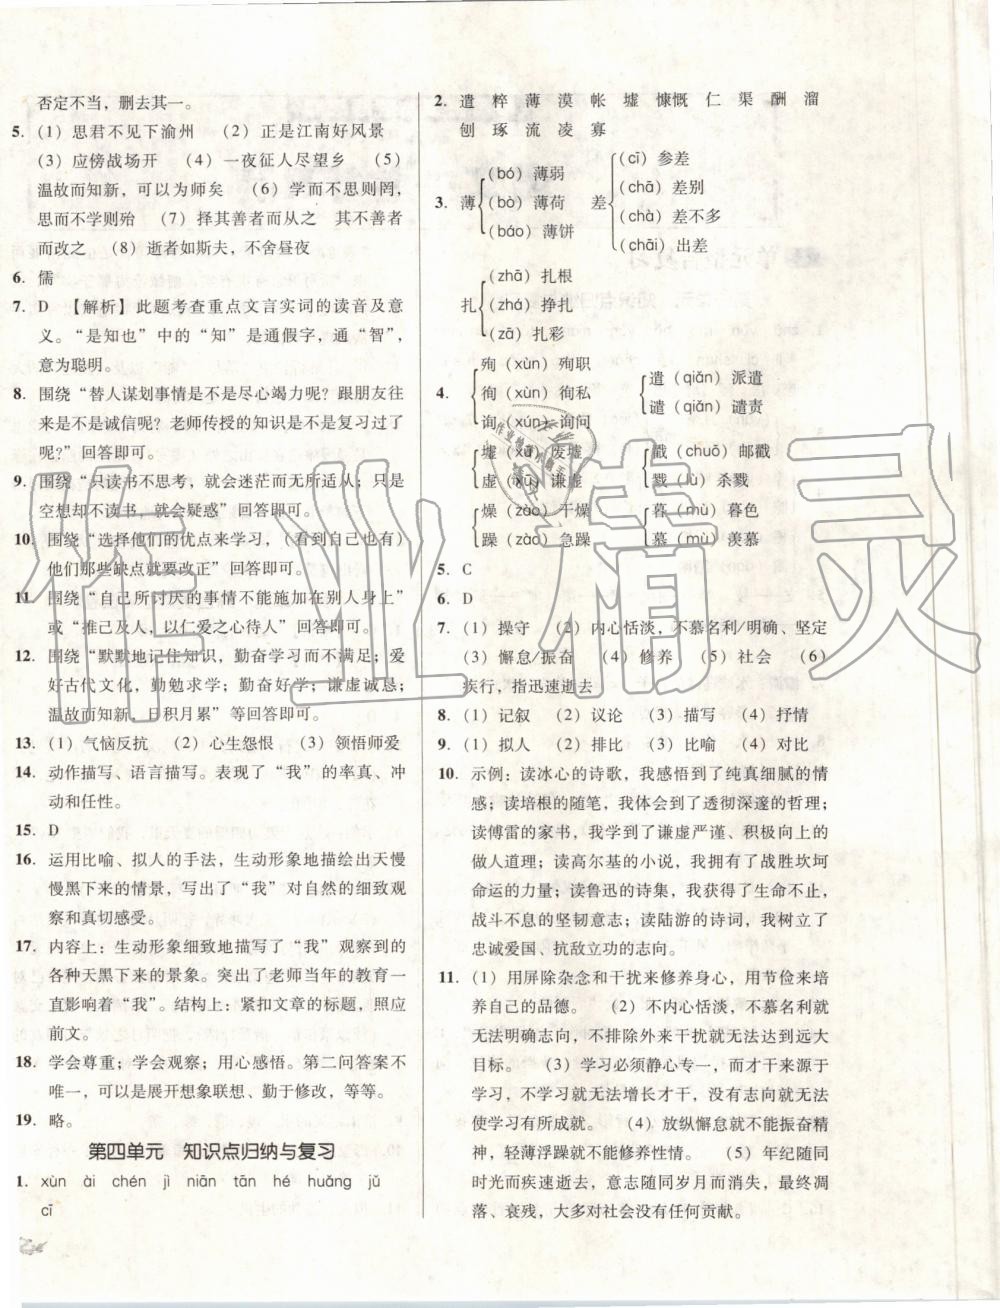 否定不当，删去其一。
5. (1) 思君不见下渝州 (2) 正是江南好风景
(3) 应傍战场开 (4) 一夜征人尽望乡 (5)
温故而知新，可以为师矣 (6) 学而不思则罔，
思而不学则殆 (7) 择其善者而从之 其不善者
而改之 (8) 逝者如斯夫，不舍昼夜
6. 儒
7. D 【解析】此题考查重点文言实词的读音及意
义。“是知也”中的“知”是通假字，通“智”，
意为聪明。
8. 围绕“替人谋划事情是不是尽心竭力呢？跟朋友往
来是不是诚信呢？老师传授的知识是不是复习过了
呢？”回答即可。
9. 围绕“只读书不思考，就会迷茫而无所适从；只是
空想却不读书，就会疑惑”回答即可。
10. 围绕“选择他们的优点来学习，（看到自己也有）
他们那些缺点就要改正”回答即可。
11. 围绕“自己所讨厌的事情不能施加在别人身上”
或“推己及人，以仁爱之心待人”回答即可。
12. 围绕“默默地记住知识，勤奋学习而不满足；爱
好古代文化，勤勉求学；勤奋好学；谦虚诚恳；
温故而知新，日积月累”等回答即可。
13. (1) 气恼反抗 (2) 心生怨恨 (3) 领悟师爱
14. 动作描写、语言描写。表现了“我”的率真、冲
动和任性。
15. D
16. 运用比喻、拟人的手法，生动形象地描绘出天慢
慢黑下来的情景，写出了“我”对自然的细致观
察和真切感受。
17. 内容上：生动形象细致地描写了“我”观察到的
各种天黑下来的景象。突出了老师当年的教育一
直影响着“我”。结构上：紧扣文章的标题，照应
前文。
18. 学会尊重；学会观察；用心感悟。第二问答案不
唯一，可以是展开想象联想、勤于修改，等等。
19. 略。
第四单元 知识点归纳与复习
1. xùn ài chén jì niān tān hé huǎng jǔ
cī
2. 遣 粹 薄 漠 帐 墟 慷慨 仁 渠 酬 溜
刨 琢 流 凌 寡
3. 薄 (bó) 薄弱 (bò) 薄荷 (báo) 薄饼
差 (cī) 参差 (chā) 差别 (chà) 差不多 (chāi) 出差
扎 (zhā) 扎根 (zhá) 挣扎 (zā) 扎彩
4. 殉 (xùn) 殉职 徇 (xùn) 徇私 询 (xún) 询问
遣 (qiǎn) 派遣 谴 (qiǎn) 谴责
墟 (xū) 废墟 虚 (xū) 谦虚
戳 (chuō) 邮戳 戮 (lù) 杀戮
燥 (zào) 干燥 躁 (zào) 急躁
暮 (mù) 暮色 慕 (mù) 羡慕
5. C
6. D
7. (1) 操守 (2) 内心恬淡，不慕名利/明确、坚定
(3) 懈怠/振奋 (4) 修养 (5) 社会 (6)
疾行，指迅速逝去
8. (1) 记叙 (2) 议论 (3) 描写 (4) 抒情
9. (1) 拟人 (2) 排比 (3) 比喻 (4) 对比
10. 示例：读冰心的诗歌，我感悟到了纯真细腻的情
感；读培根的随笔，我体会到了透彻深邃的哲理；
读傅雷的家书，我学到了谦虚严谨、积极向上的
做人道理；读高尔基的小说，我拥有了战胜坎坷
命运的力量；读鲁迅的诗集，我获得了生命不止，
战斗不息的坚韧意志；读陆游的诗词，我树立了
忠诚爱国、抗敌立功的志向。
11. (1) 用屏除杂念和干扰来修养身心，用节俭来培
养自己的品德。 (2) 不内心恬淡，不慕名利就
无法明确志向，不排除外来干扰就无法达到远大
目标。 (3) 学习必须静心专一，而才干来源于
学习，不学习就无法增长才干，没有志向就无法
使学习有所成就。 (4) 放纵懈怠就不能振奋精
神，轻薄浮躁就不能修养性情。 (5) 年纪随同
时光而疾速逝去，意志随同岁月而消失，最终凋
落、衰残，大多对社会没有任何贡献。
作业精灵